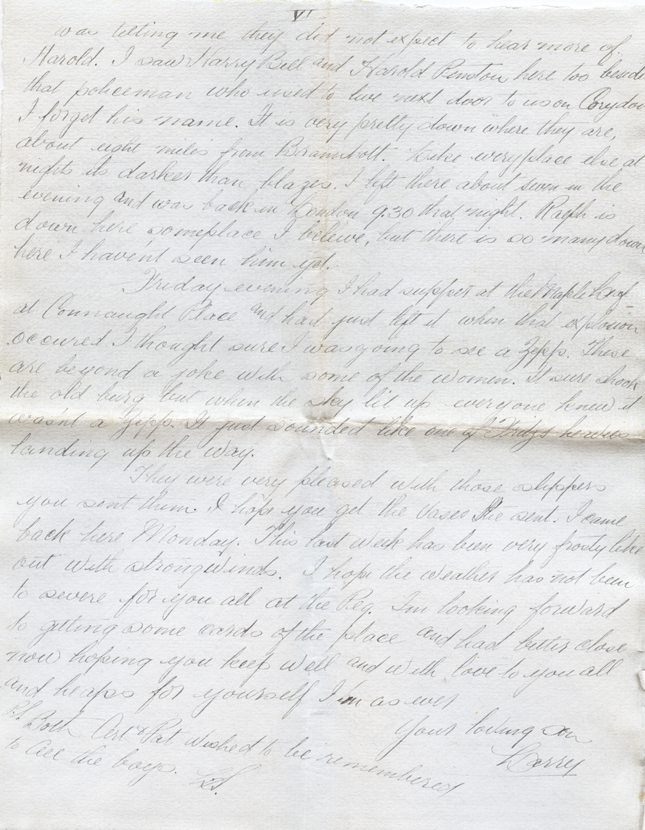 V
was telling me they did not expect to hear more of
Harold. I saw Harry Bell and Harold Penton here too beside
that policeman who used to live next door to us on Corydon
I forget his name. It is very pretty down where they are,
about eight miles from Bramshott. Like everyplace else at
nights its darker than blazes. I left there about seven in the
evening and was back in London 9.30 that night. Ralph is
down here someplace I believe, but there is so many down
here I havent seen him yet.
Friday evening I had supper at the Maple Leaf
at Connaught Place and had just left it when that explosion
occured I thought sure I was going to see a Zepp. These
are beyond a joke with some of the women. It sure shook
the old burg but when the sky lit up everyone knew it
wasnt a Zepp. It just sounded like one of heavies
landing up the way.
They were very pleased with those slippers
you sent them. I hope you get the vases sent. I came
back here Monday. This last week has been very frosty like
out with strong winds. I hope the weather has not been
to severe for you all at the Reg. Im looking forward
to getting some cards of the place and had better close
now hoping you keep well and with love to you all
and heaps for yourself I'm as ever
Your loving son
Larry
P.S. Both Art & Pat wished to be remembered
to all the boys. LS.